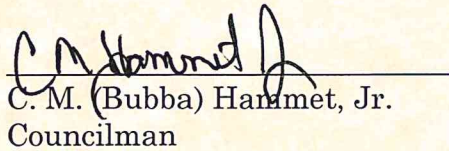 C M Hammet Jr
C. M. (Bubba) Hammet, Jr.
Councilman